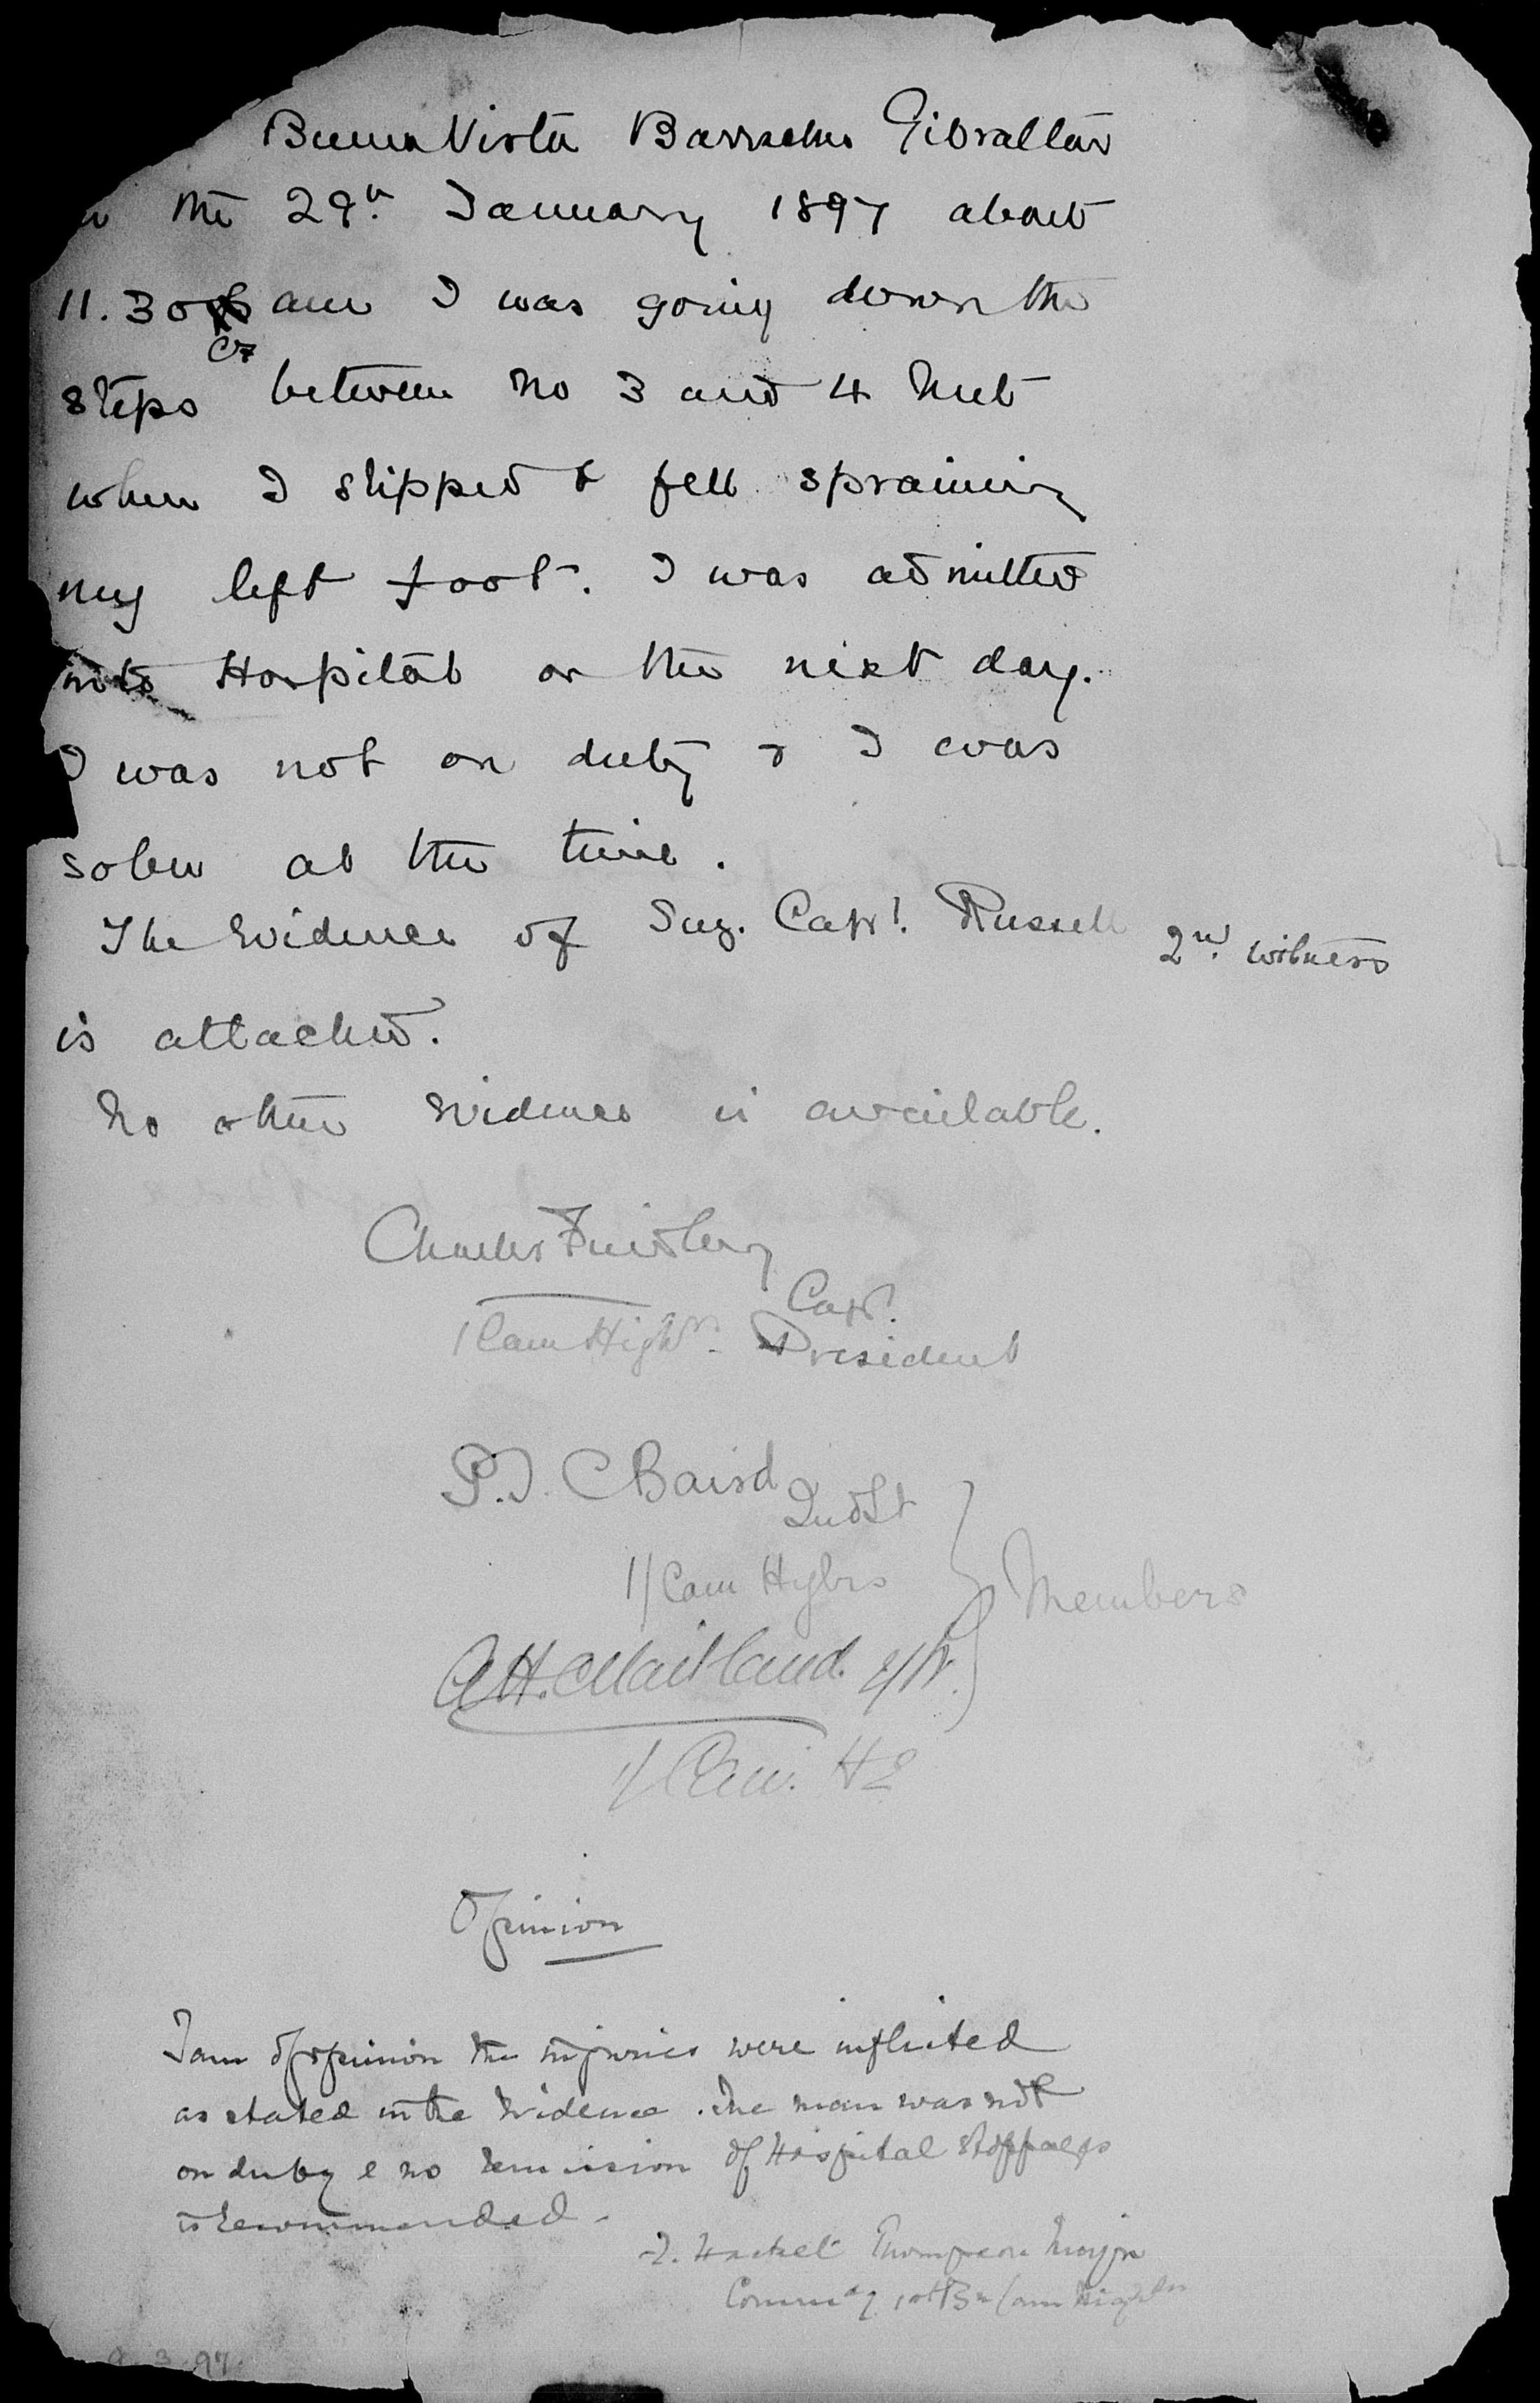 Buena Vista Barracks Gibraltar
the 29th January 1897 about
11.30 am I was going down the
steps between No 3 and 4 Hut
when I slipped & fell spraining
my left foot. I was admitted
into Hospital on the next day.
I was not on duty & I was
sober at the time.
The Evidence of Surg. Capt. Russell 2nd witness
is attached.
No other Evidence is available.
Charles Findlay
Capt.
1 Cam Highrs. President
P.J. C Baird 2nd Lt
1/ Cam Hghrs
Members
A H. Maitland.
1/ Cam. H
Opinion
I am of opinion the injuries were inflicted
as stated in the Evidence. The man was not
on duty & no remission of Hospital stoppages
is recommended.
Hacket Thompson Major
Commdg 1st Bn Cam Highrs
3.97.